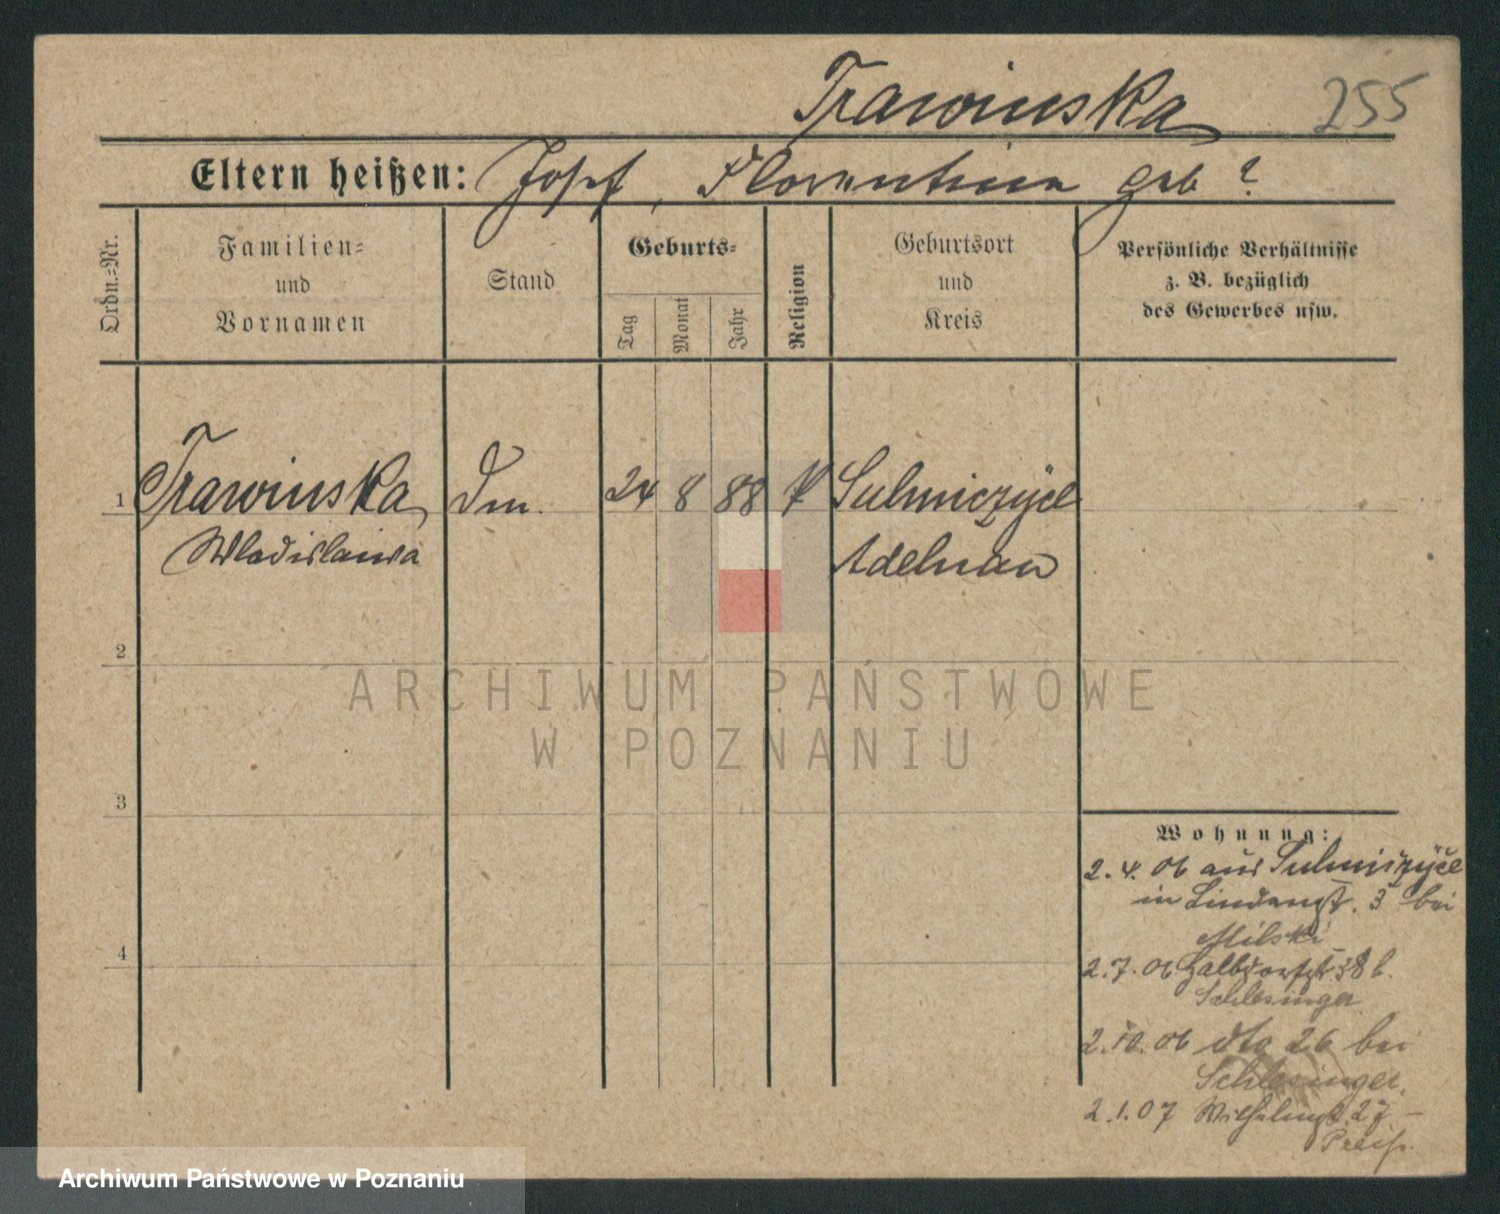 Trawinska 255
Eltern heißen: Josef, Florentina geb ?
Ordn.-Nr.
Familien-
und
Vornamen
Stand
Geburts-
Tag
Monat
Jahr
Religion
Geburtsort
und
Kreis
Persönliche Verhältnisse
z. B. bezüglich
des Gewerbes usw.
1 Trawinska Dm. 24 8 88 K Sulmiczyce
Wladislawa Adelnau
2
3
4
Wohnung:
2.4.06 aus Sulmiczyce
in Lindenst. 3 bei
Milski
2.7.06 Halbdorfst 38 b.
Schlesinger
2.10.06 dto 26 bei
Schlesinger.
2.1.07 Wilhelmst. 27 –
ARCHIWUM PAŃSTWOWE
W POZNANIU
Archiwum Państwowe w Poznaniu